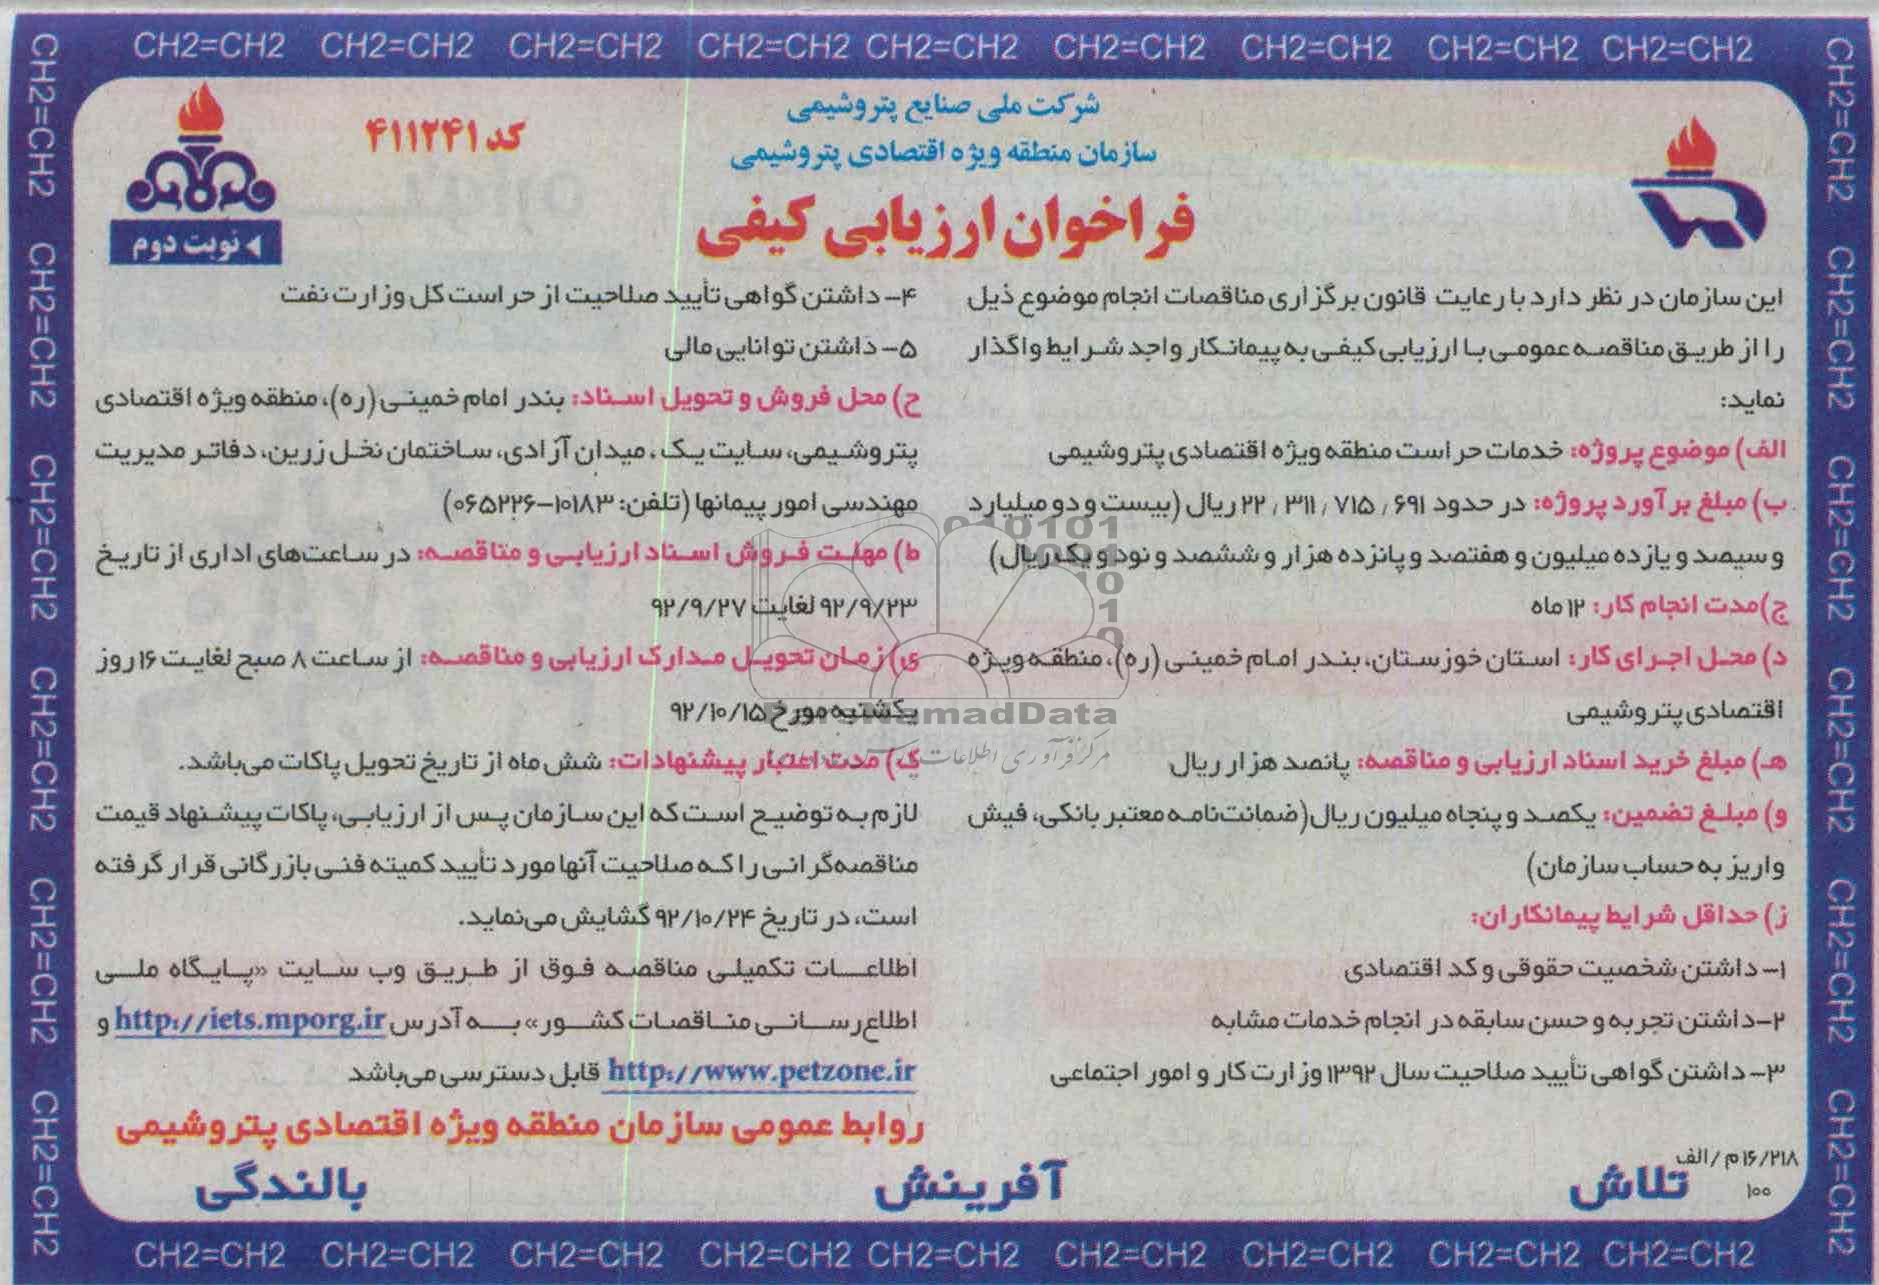 CH2=CH2 CH2=CH2 CH2=CH2 CH2=CH2 CH2=CH2 CH2=CH2 CH2=CH2 CH2=CH2 CH2=CH2
شرکت ملی صنایع پتروشیمی
سازمان منطقه ویژه اقتصادی پتروشیمی
فراخوان ارزیابی کیفی
کد ۴۱۱۲۴۱
نوبت دوم
این سازمان در نظر دارد با رعایت قانون برگزاری مناقصات انجام موضوع ذیل
را از طریق مناقصه عمومی با ارزیابی کیفی به پیمانکار واجد شرایط واگذار
نماید:
الف) موضوع پروژه: خدمات حراست منطقه ویژه اقتصادی پتروشیمی
ب) مبلغ برآورد پروژه: در حدود ۲۲،۳۱۱،۷۱۵،۶۹۱ ریال (بیست و دو میلیارد
و سیصد و یازده میلیون و هفتصد و پانزده هزار و ششصد و نود و یک ریال)
ج)مدت انجام کار: ۱۲ ماه
د) محل اجرای کار: استان خوزستان، بندر امام خمینی (ره)، منطقه ویژه
اقتصادی پتروشیمی
هـ) مبلغ خرید اسناد ارزیابی و مناقصه: پانصد هزار ریال
و) مبلغ تضمین: یکصد و پنجاه میلیون ریال(ضمانت‌نامه معتبر بانکی، فیش
واریز به حساب سازمان)
ز) حداقل شرایط پیمانکاران:
۱- داشتن شخصیت حقوقی و کد اقتصادی
۲-داشتن تجربه و حسن سابقه در انجام خدمات مشابه
۳- داشتن گواهی تأیید صلاحیت سال ۱۳۹۲ وزارت کار و امور اجتماعی
۴- داشتن گواهی تأیید صلاحیت از حراست کل وزارت نفت
۵- داشتن توانایی مالی
ح) محل فروش و تحویل اسناد: بندر امام خمینی (ره)، منطقه ویژه اقتصادی
پتروشیمی، سایت یک، میدان آزادی، ساختمان نخل زرین، دفاتر مدیریت
مهندسی امور پیمانها (تلفن: ۱۰۱۸۳-۰۶۵۲۲۶)
ط) مهلت فروش اسناد ارزیابی و مناقصه: در ساعت‌های اداری از تاریخ
۹۲/۹/۲۳ لغایت ۹۲/۹/۲۷
ی) زمان تحویل مدارک ارزیابی و مناقصه: از ساعت ۸ صبح لغایت ۱۶ روز
یکشتبه مورخ ۹۲/۱۰/۱۵
ک) مدت اعتبار پیشنهادات: شش ماه از تاریخ تحویل پاکات می‌باشد.
لازم به توضیح است که این سازمان پس از ارزیابی، پاکات پیشنهاد قیمت
مناقصه‌گرانی را که صلاحیت آنها مورد تأیید کمیته فنی بازرگانی قرار گرفته
است، در تاریخ ۹۲/۱۰/۲۴ گشایش می‌نماید.
اطلاعات تکمیلی مناقصه فوق از طریق وب سایت «پایگاه ملی
اطلاع‌رسانی مناقصات کشور» به آدرس http://iets.mporg.ir و
http://www.petzone.ir قابل دسترسی می‌باشد
روابط عمومی سازمان منطقه ویژه اقتصادی پتروشیمی
۱۶/۲۱۸م/الف
۱۰۰
تلاش آفرینش بالندگی
CH2=CH2 CH2=CH2 CH2=CH2 CH2=CH2 CH2=CH2 CH2=CH2 CH2=CH2 CH2=CH2 CH2=CH2
CH2=CH2 CH2=CH2 CH2=CH2 CH2=CH2 CH2=CH2 CH2=CH2
CH2=CH2 CH2=CH2 CH2=CH2 CH2=CH2 CH2=CH2 CH2=CH2